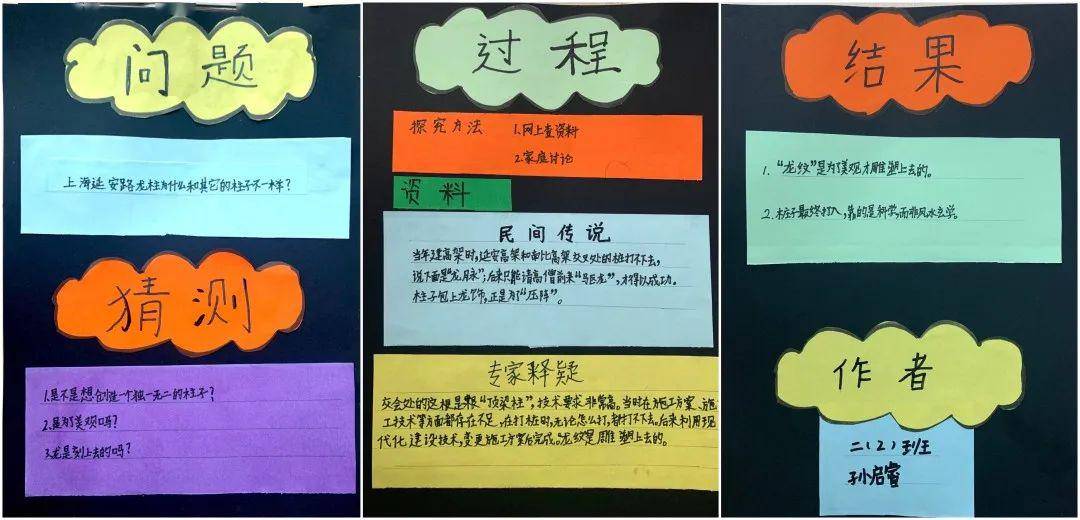 问题
上海延安路龙柱为什么和其它的柱子不一样？
猜测
1.是不是想创造一个独一无二的柱子？
2.是为了美观吗？
3.龙是刻上去的吗？
过程
探究方法 1.网上查资料
2.家庭讨论
资料
民间传说
当年建高架时，延安高架和南北高架交叉处的桩打不下去，
说下面是“龙脉”；后来只能请高僧前来“驱龙”，才得以成功。
柱子包上龙饰，正是为了“压阵”。
专家释疑
交会处的这根是根“顶梁柱”，技术要求非常高。当时在施工方案、施
工技术等方面都存在不足，在打桩时，无论怎么打，都打不下去。后来利用现
代化建设技术，变更施工方案后完成。龙纹是雕塑上去的。
结果
1.“龙纹”是为了美观才雕塑上去的。
2.柱子最终打入，靠的是科学，而非风水玄学。
作者
二（2）班
孙启睿